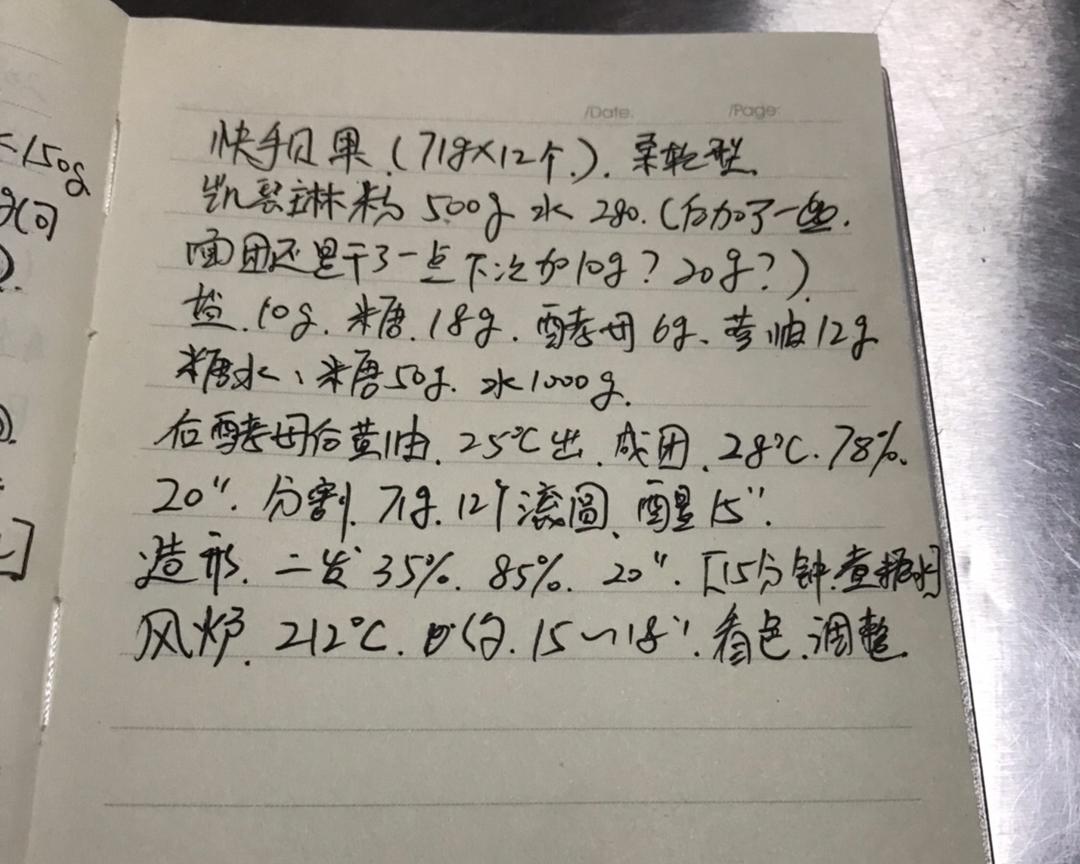 /Date: /Page:
快手贝果(71g×12个).柔软型.
凯瑟琳粉 500g 水 280.(后加了一些.
面团还是干了一点下次加10g?20g?).
盐.10g.糖.18g.酵母6g、黄油12g
糖水、糖50g.水1000g.
后酵母后黄油.25℃出.成团.28℃.78%.
20".分割.71g.12个滚圆.醒15".
造形.二发35%.85%.20".[15分钟.煮糖水]
风炉.212℃.15~18".看色.调整.
150g